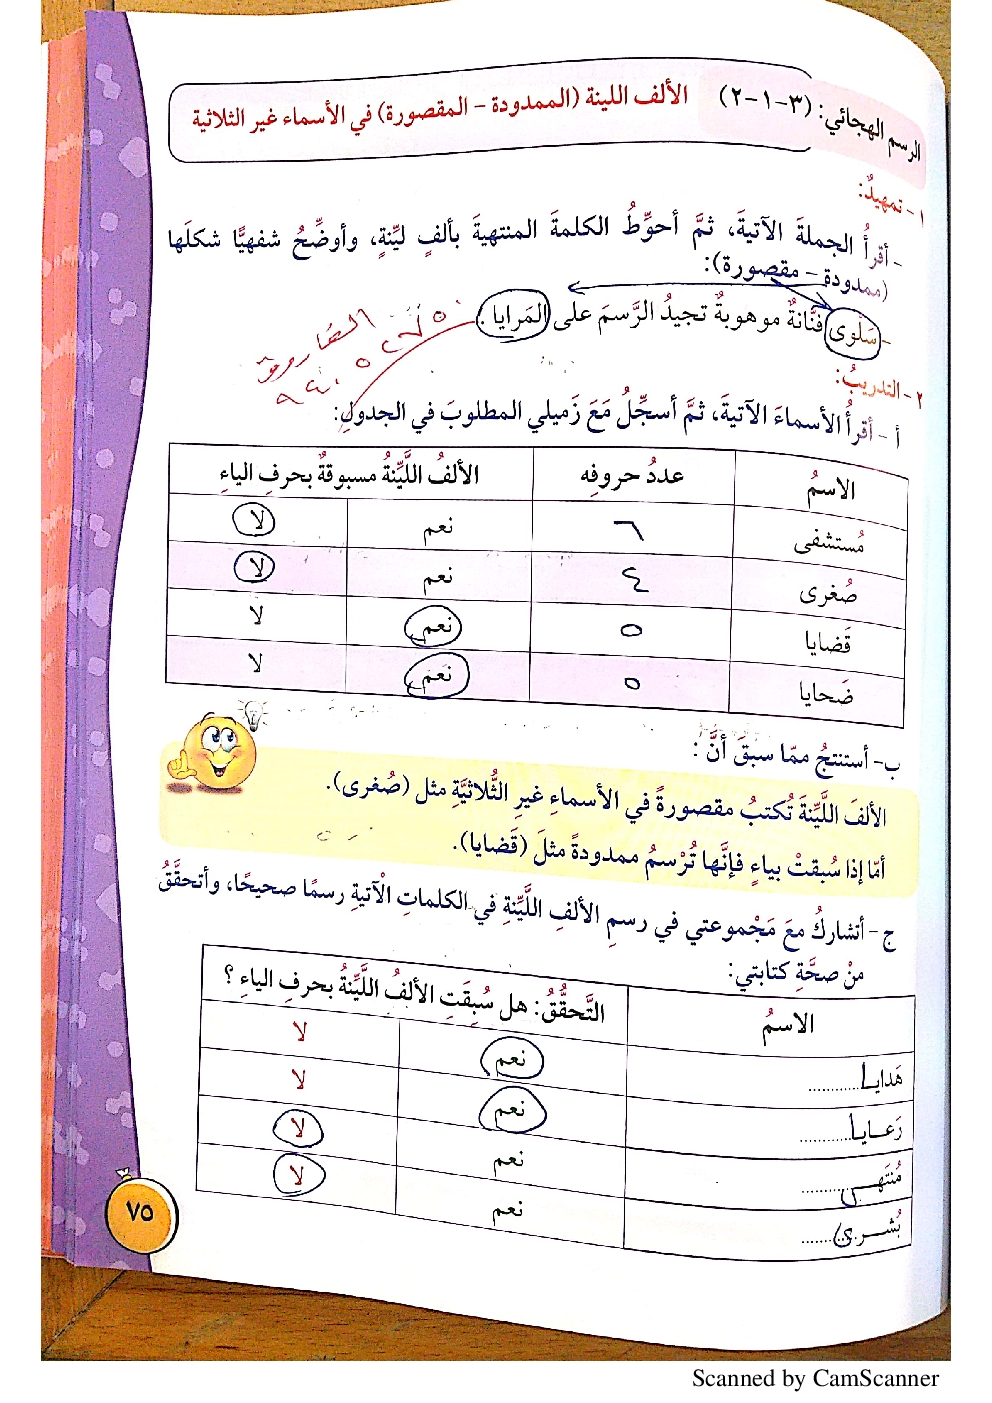 الرسم الهجائي: (٣-١-٢) الألف اللينة (الممدودة - المقصورة) في الأسماء غير الثلاثية
١- تمهيدٌ:
- أقرأُ الجملةَ الآتيةَ، ثمَّ أحوِّطُ الكلمةَ المنتهيةَ بألفٍ ليِّنةٍ، وأوضِّحُ شفهيًّا شكلَها
(ممدودة - مقصورة):
- سَلْوى فنَّانةٌ موهوبةٌ تجيدُ الرَّسمَ على المَرايا.
٢- التدريبُ:
أ - أقرأُ الأسماءَ الآتيةَ، ثمَّ أسجِّلُ مَعَ زَميلي المطلوبَ في الجدولِ:
الاسمُ عددُ حروفِه الألفُ اللَّيِّنةُ مسبوقةٌ بحرفِ الياءِ
مُستشفى ٦ نعم لا
صُغرى ٤ نعم لا
قَضايا ٥ نعم لا
ضَحايا ٥ نعم لا
ب- أستنتجُ ممّا سبقَ أنَّ :
الألفَ اللَّيِّنةَ تُكتبُ مقصورةً في الأسماءِ غيرِ الثُّلاثيَّةِ مثل (صُغرى).
أمّا إذا سُبقتْ بياءٍ فإنَّها تُرْسمُ ممدودةً مثلَ (قَضايا).
ج- أتشاركُ معَ مَجْموعتي في رسمِ الألفِ اللَّيِّنةِ في الكلماتِ الآتيةِ رسمًا صحيحًا، وأتحقَّقُ
منْ صحَّةِ كتابتي:
الاسمُ التَّحقُّقُ: هل سُبِقَتِ الألفُ اللَّيِّنةُ بحرفِ الياءِ ؟
هَدايـا........... نعم لا
رَعـايـا........... نعم لا
مُنتَهـى........... نعم لا
بُشـرى........... نعم لا
٧٥
Scanned by CamScanner